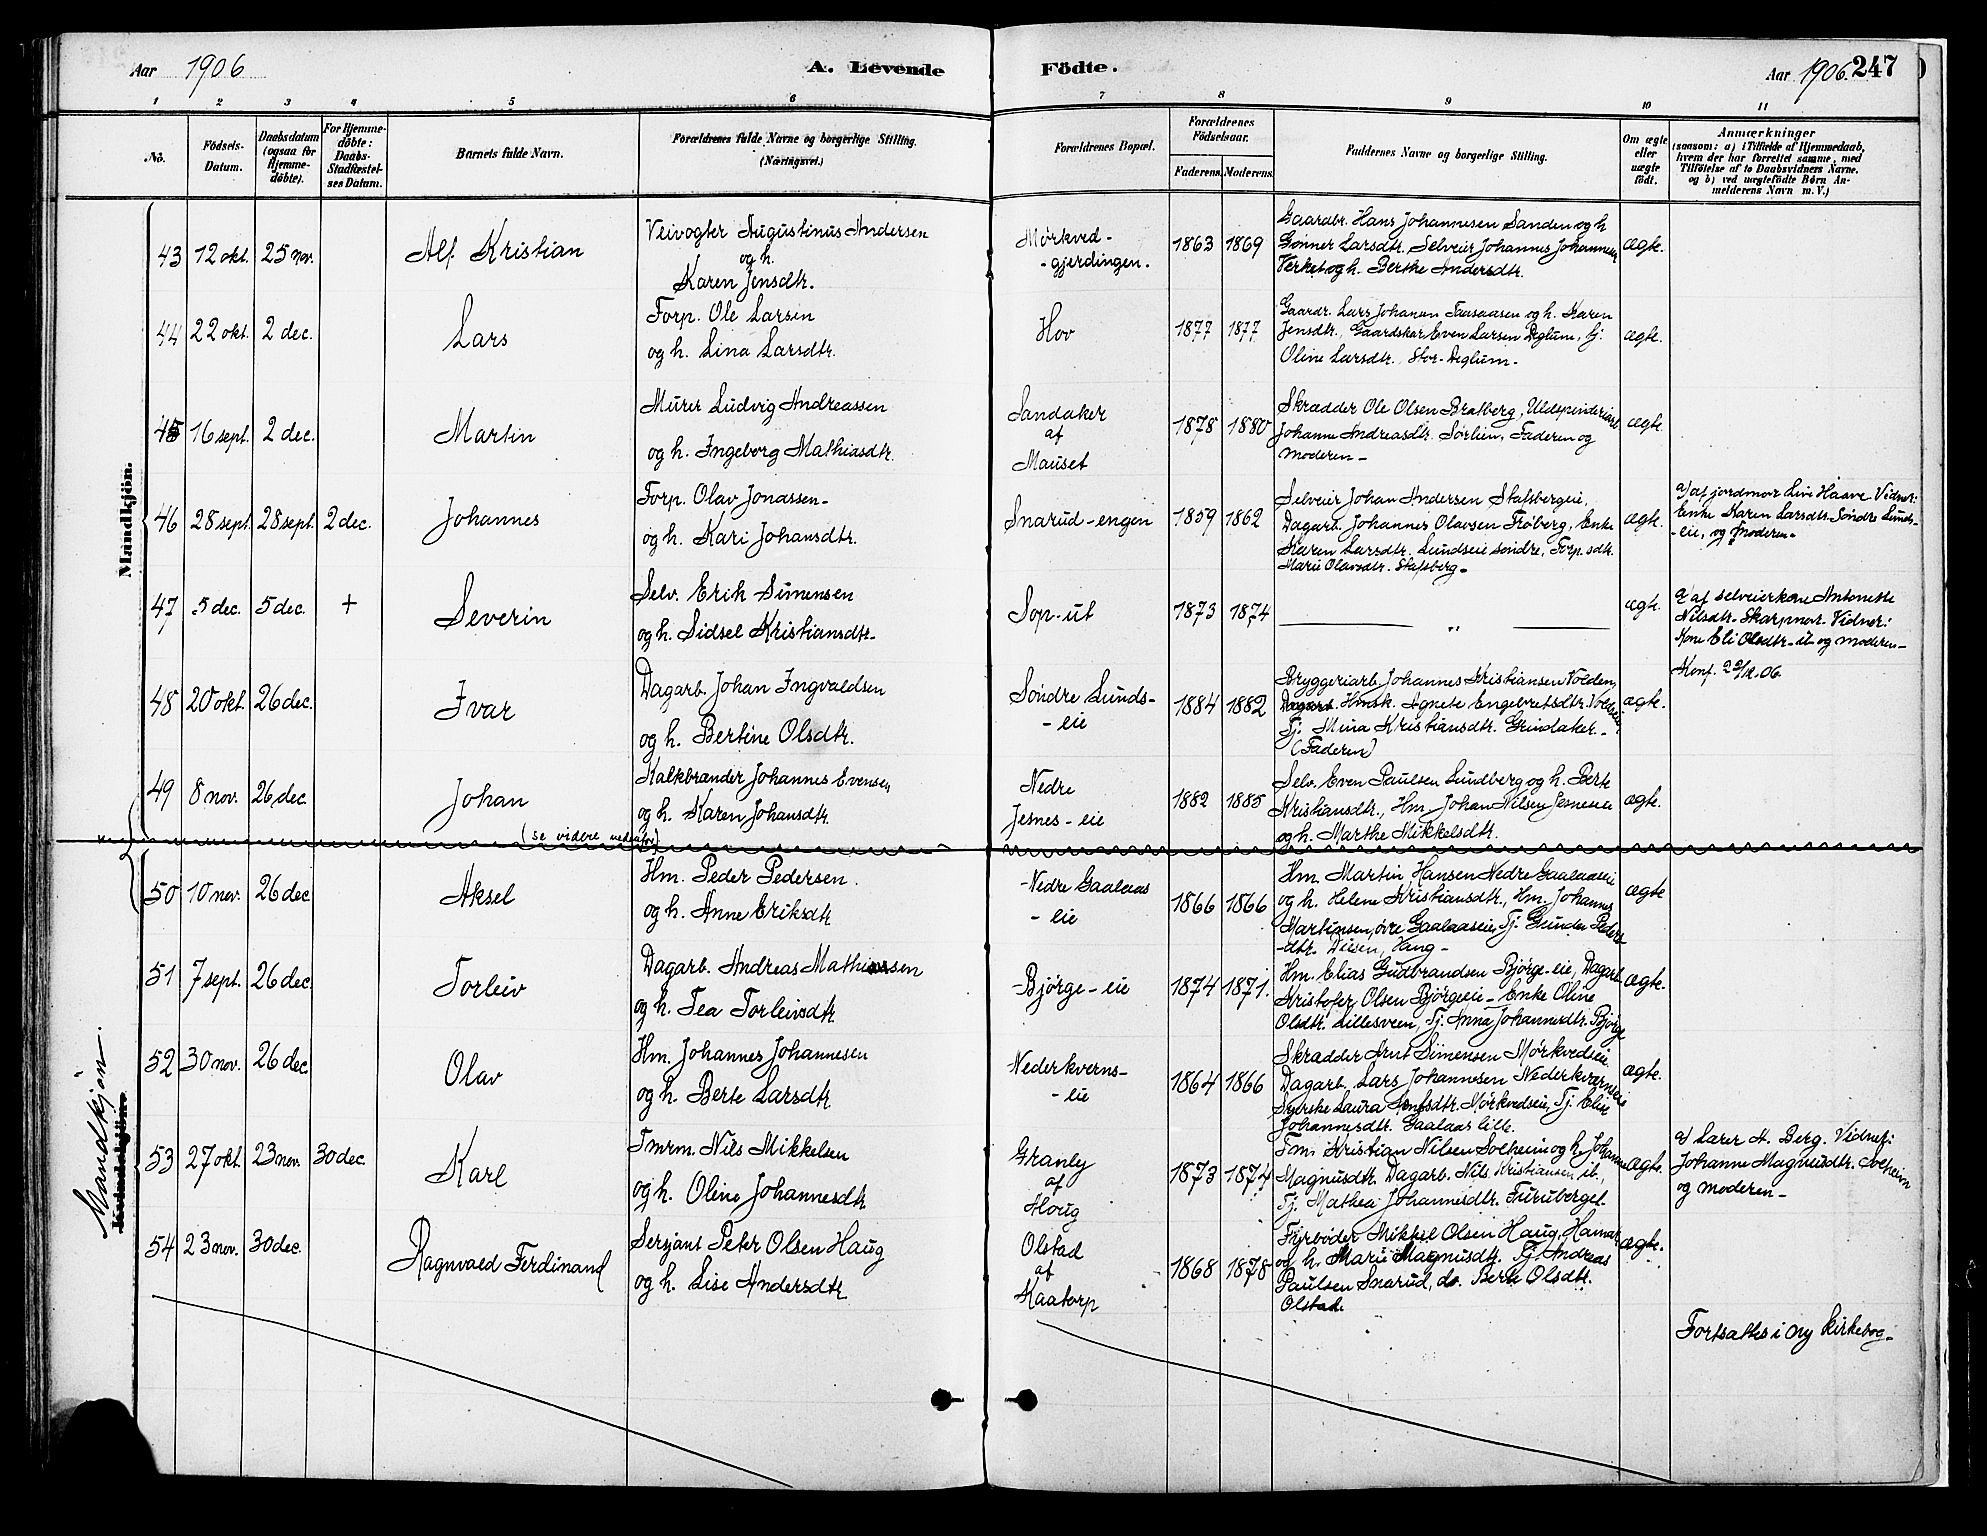 Aar 1906
A. Levende
Födte.
Aar 1906. 247
1 2 3 4 5 6 7 8 9 10 11
No.
Födsels-
Datum.
Daabsdatum
(ogsaa for
Hjemme-
döbte).
For Hjemme-
döbte:
Daabs-
Stadfæstel-
ses Datum.
Barnets fulde Navn.
Forældrenes fulde Navne og borgerlige Stilling.
(Næringsvei.)
Forældrenes Bopæl.
Forældrenes
Födselsaar.
Faderens. Moderens.
Faddernes Navne og borgerlige Stilling.
Om ægte
eller
uægte
født.
Anmærkninger
(saasom: a) i Tilfælde af Hjemmedaab,
hvem der har forrettet samme, med
Tilföielse af to Daabsvidners Navne.
og b) ved uægtefödte Børn An-
melderens Navn m. V.)
Mandkjön.
43 12 okt. 25 nov. Alf Kristian
Veivogter Augustinus Andersen
og h.
Karen Jensdtr.
Mørkved-
-gjerdingen.
1863 1869
Gaardbr. Hans Johannesen Sanden og h
Gønner Larsdtr. Selveier Johannes Johannesen
Verket og h. Berthe Andersdtr.
ægte.
44 22 okt. 2 dec. Lars
Forp. Ole Larsen
og h. Lina Larsdtr.
Hov
1877 1877
Gaardr. Lars Johanan Faasaasen og h. Karen
Jensdtr., Gaardskar Even Larsen Deglum, Tj.
Oline Larsdtr. Stor-Deglum-
ægte.
45 16 sept. 2 dec. Martin
Murer Ludvig Andreassen
og h. Ingeborg Mathiasdtr.
Sandaker
af
Mauset
1878 1880
Skrædder Ole Olsen Bratberg, Uldspinderiarb.
Johanne Andreasdtr. Sørlien, Faderen og
Moderen-
ægte.
46 28 sept. 28 sept. 2 dec. Johannes
Forp. Olav Jonassen-
og h. Kari Johansdtr.
Snarud-engen
1859 1862
Selveier Johan Andersen Stafsbergeie,
Dagarb. Johannes Olavsen Frøberg, Enke
Karen Larsdtr. Lundseie søndre, Forp.sdtr.
Marie Olavsdtr. Stafsberg-
ægte.
a/ af jordmor Live Haave. Vidner:
Enke Karen Larsdtr. Søndre Lunds-
-eie, og moderen-
47 5 dec. 5 dec. + Severin
Selv. Erik Simensen
og h. Sidsel Kristiansdtr-
Sop-ut
1873 1874
— „ —
ægte.
a/ af selveierkone Antonette
Nilsdtr. Skarpnor. Vidner:
Kone Eli Olsdtr-it og moderen-
48 20 okt. 26 dec. Ivar
Dagarb. Johan Ingvaldsen
og h. Bertine Olsdtr.
Søndre Lunds-
-eie
1884 1882
Bryggeriarb. Johannes Kristiansen Volden,
Hmsk. Agnete Engebretsdtr. Voldeie
Tj. Mina Kristiansdtr. Grindaker-
(Faderen)
ægte.
Konf. 22/12.06
49 8 nov. 26 dec. Johan
Kalkbrænder Johannes Evensen
og h. Karen Johansdtr.
Nedre
Jesnes-eie
1882 1885
Selv. Even Paulsen Lundberg og h. Berte
Kristiansdtr., Hm. Johan Nilsen Jesneseie
og h. Marthe Mikkelsdtr.
ægte.
(se videre nedenfor)
Mandkjön.
Kvindekjön.
50 10 nov. 26 dec. Aksel
Hm. Peder Pedersen.
og h. Anne Eriksdtr
-Nedre Gaalaas
-eie
1866 1866
Hm. Martin Hansen Nedre Gaalaaseie
og h. Helene Kristiansdtr., Hm. Johannes
Martinsen, øvre Gaalaaseie, Tj. Gunda Peders
-dtr. Disen, Vang-
ægte
51 7 sept. 26 dec. Torleiv
Dagarb. Andreas Mathiassen
og h. Tea Torleivsdtr.
Bjørge-eie
1874 1871.
Hm. Elias Gudbrandsen Bjørge-eie, Dagarb.
Kristofer Olsen Bjørgeeie-Enke Oline
Olsdtr. Lillesveen, Tj. Anna Johannesdtr. Bjørge
ægte.
52 30 nov. 26 dec. Olav
Hm. Johannes Johannesen
og h. Berte Larsdtr.
Nederkverns-
-eie
1864 1866
Skrædder Arnt Simensen Mørkvedseie
Dagarb. Lars Johannesen Nederkværnseie
Syerske Laura Arntsdtr. Mørkvedseie, Tj. Elise
Johannesdtr. Gaalaas lille.
ægte.
53 27 okt. 23 nov. 30 dec. Karl
Tmrm. Nils Mikkelsen
og h. Oline Johannesdtr
Granly
af
Houg
1873 1874
Tm. Kristian Nilsen Solheim og h. Johanne
Magnusdtr. Dagarb. Nils Kristiansen ib.,
Tj. Mathea Johannesdtr. Furuberget.
ægte.
a/ Lærer A. Berg. Vidner:
Johanne Magnusdtr. Solheim
og moderen-
54 23 nov. 30 dec. Ragnvald Ferdinand
Sersjant Peter Olsen Haug
og h. Lise Andersdtr
Olstad
af
Kaatorp
1868 1878
Fyrbøder Mikkel Olsen Haug, Hamar
og h. Marie Magnusdtr. Tj. Andreas
Paulsen Snarud, do. Berte Olsdtr.
Olstad.
ægte.
Fortsættes i ny kirkebog-